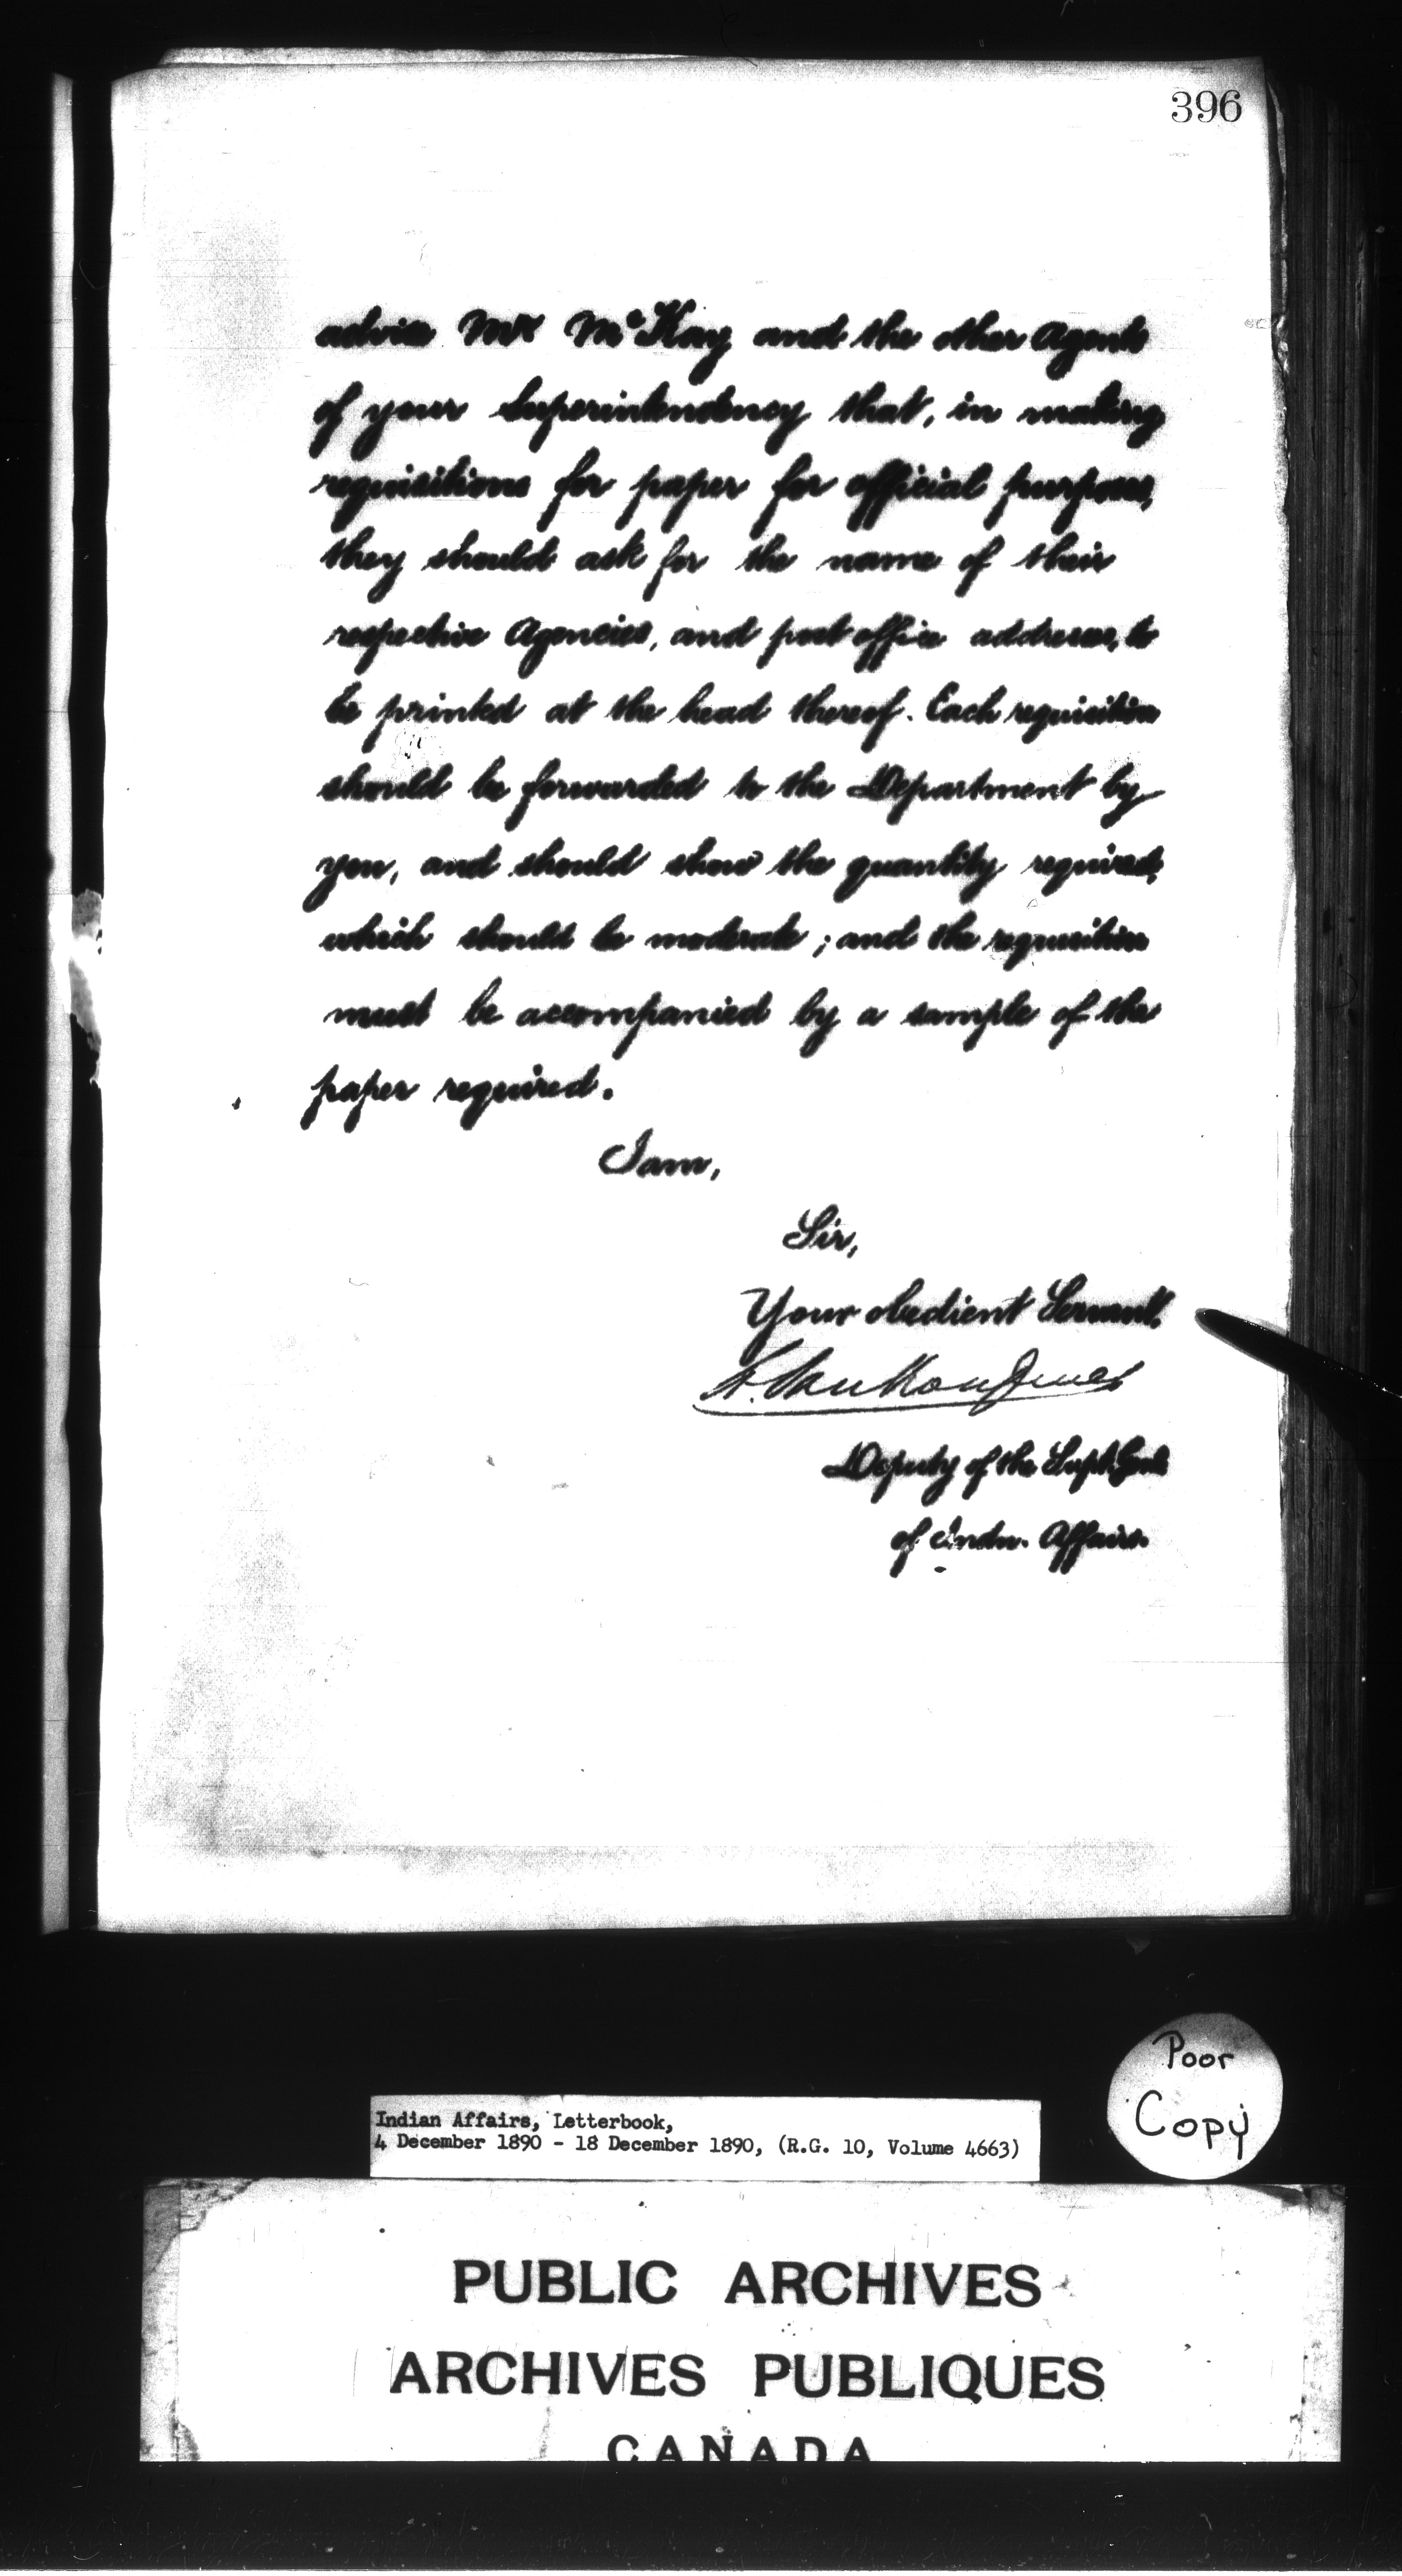 396
advise Mr McKay and the other Agents
of your Superintendency that, in making
requisitions for paper for official purposes,
they should ask for the name of their
respective Agencies, and post office addresses, to
be printed at the head thereof. Each requisition
should be forwarded to the Department by
you, and should show the quantity required,
which should be moderate; and the requisition
must be accompanied by a sample of the
paper required.
I am,
Sir,
Your obedient Servant.
L. Vankoughnet
Deputy of the Supt. Genl
of Indn. Affairs.
Poor
Copy
Indian Affairs, Letterbook,
4 December 1890 - 18 December 1890, (R.G. 10, Volume 4663)
PUBLIC ARCHIVES
ARCHIVES PUBLIQUES
CANADA